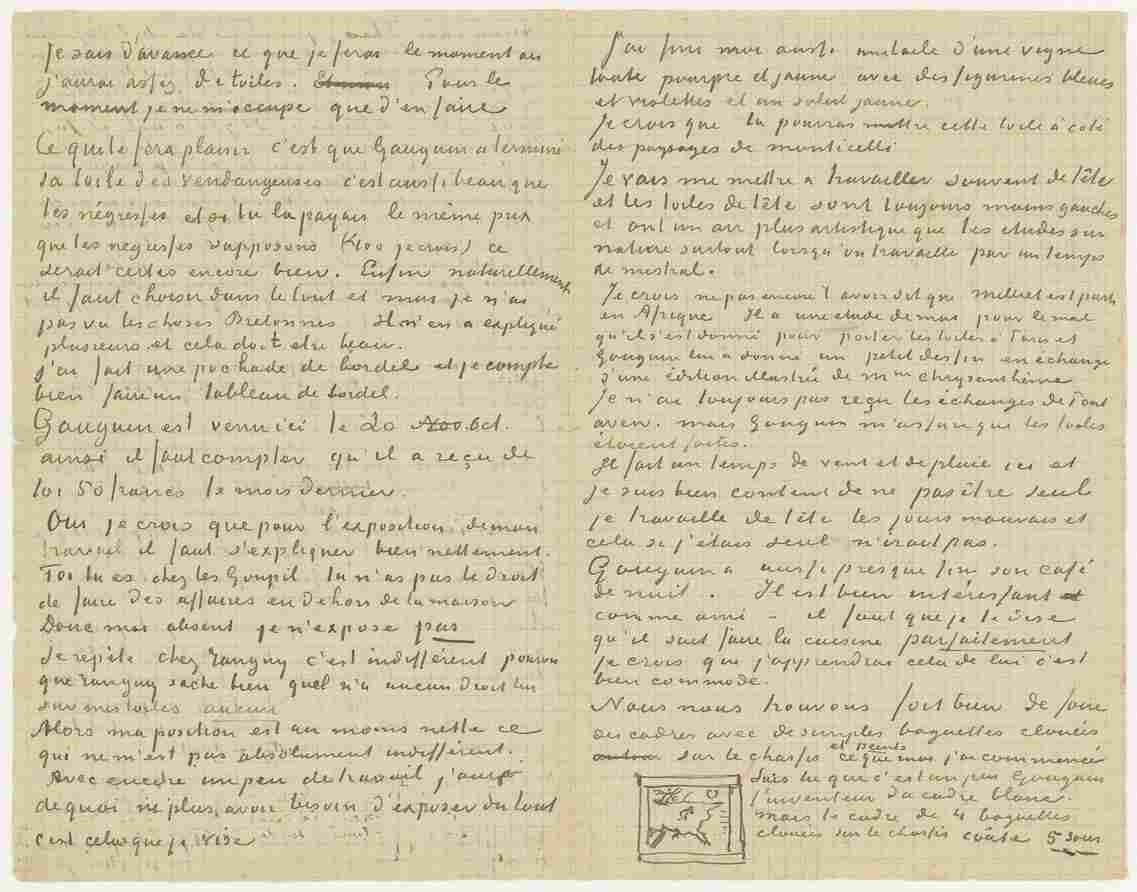 Je sais d'avance ce que je ferai le moment où
j'aurai assez de toiles. Pour le
moment je ne m'occupe que d'en faire
Ce qui te fera plaisir c'est que Gauguin a terminé
sa toile des vendangeuses c'est aussi beau que
les négresses et si tu la payais le même prix
que les negresses supposons (400 je crois) ce
serait certes encore bien. Enfin naturellement
il faut choisir dans le tout et moi je n'ai
pas vu les choses Bretonnes. Il m'en a expliqué
plusieurs et cela doit etre beau.
J'ai fait une pochade de bordel et je compte
bien faire un tableau de bordel.
Gauguin est venu ici le 20 Nov. Oct.
ainsi il faut compter qu'il a reçu de
toi 50 francs le mois dernier.
Oui je crois que pour l'exposition de mon
travail il faut s'expliquer bien nettement.
Toi tu es chez les Goupil. tu n'as pas le droit
de faire des affaires en dehors de la maison
Donc moi absent je n'expose pas
Je répète chez Tanguy c'est indifférent pourvu
que Tanguy sache bien quel n'a aucun droit lui
sur mes toiles aucun
Alors ma position est au moins nette ce
qui ne m'est pas absolument indifférent.
Avec encore un peu de travail j'aurai
de quoi ne plus avoir besoin d'exposer du tout
c'est cela que je vise
J'ai fini moi aussi une toile d'une vigne
toute pourpre et jaune avec des figurines bleues
et violettes et un soleil jaune.
Je crois que tu pourras mettre cette toile à coté
des paysages de monticelli
Je vais me mettre a travailler souvent de tête
et les toiles de tête sont toujours moins gauches
et ont un air plus artistique que les etudes sur
nature surtout lorsqu'on travaille par un temps
de mistral.
Je crois ne pas encore t'avoir dit que milliet est parti
en Afrique Il a une etude de moi pour le mal
qu'il s'est donné pour porter les toiles à Paris et
Gauguin lui a donné un petit dessin en échange
d'une édition illustrée de Mme Chrysanthème
Je n'ai toujours pas reçu les échanges de Pont
aven. mais Gauguin m'assure que les toiles
étaient faites.
Il fait un temps de vent et de pluie ici et
je suis bien content de ne pas être seul
je travaille de tête les jours mauvais et
cela si j'étais seul n'irait pas.
Gauguin a aussi presque fini son café
de nuit. Il est bien intéressant
comme ami – il faut que je te dise
qu'il sait faire la cuisine parfaitement
Je crois que j'apprendrai cela de lui c'est
bien commode.
Nous nous trouvons fort bien de faire
des cadres avec de simples baguettes clouées
sur le chassis et peints ce que moi j'ai commencé
Sais tu que c'est un peu Gauguin
l'inventeur du cadre blanc.
mais le cadre de 4 baguettes
clouées sur le chassis coûte 5 sous